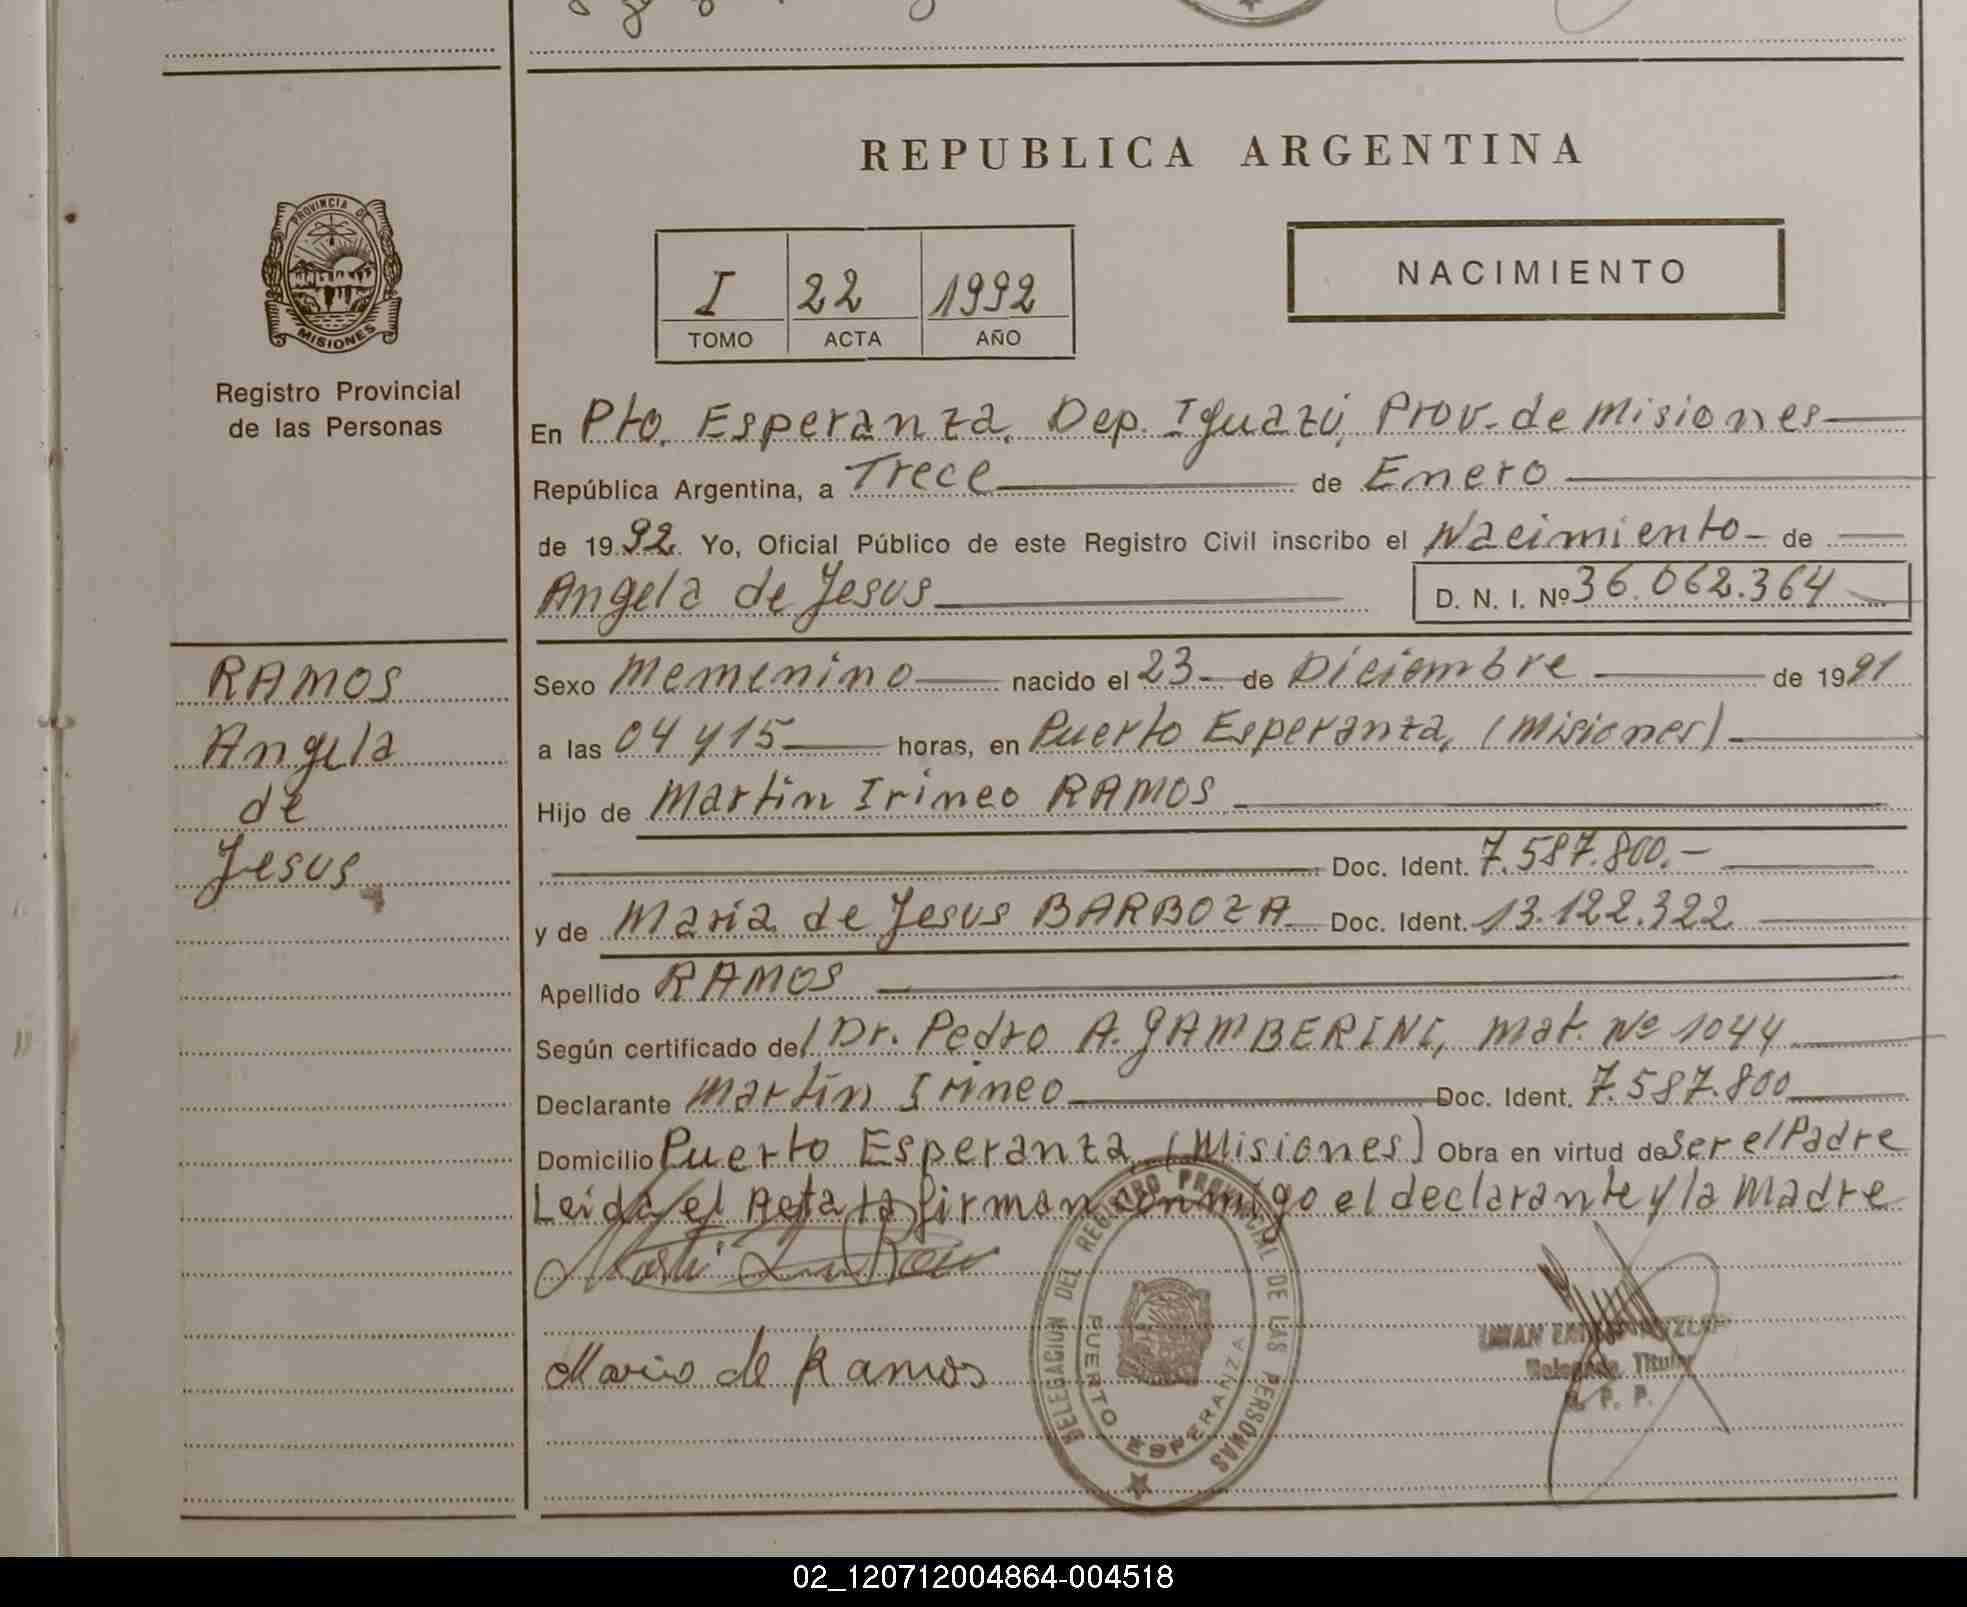 REPUBLICA ARGENTINA
PROVINCIA DE
MISIONES
Registro Provincial
de las Personas
I 22 1992
TOMO ACTA AÑO
NACIMIENTO
En Pto. Esperanza, Dep. Iguazú, Prov. de Misiones
República Argentina, a Trece de Enero
de 1992. Yo, Oficial Público de este Registro Civil inscribo el Nacimiento de
Angela de Jesus D. N. I. Nº 36.062.364
RAMOS
Angela
de
Jesus
Sexo Memenino nacido el 23 de Diciembre de 1991
a las 04 y 15 horas, en Puerto Esperanza, (Misiones)
Hijo de Martin Irineo RAMOS
Doc. Ident. 7.587.800.-
y de Maria de Jesus BARBOZA Doc. Ident. 13.122.322
Apellido RAMOS
Según certificado del Dr. Pedro A. GAMBERINI, Mat. Nº 1044
Declarante Martín Irineo Doc. Ident. 7.587.800
Domicilio Puerto Esperanza, (Misiones) Obra en virtud de Ser el Padre
Leida el Acta la firman conmigo el declarante y la Madre
Maria de Ramos
DELEGACION DEL REGISTRO PROVINCIAL DE LAS PERSONAS
PUERTO ESPERANZA
Titular
R. P. P.
02_120712004864-004518